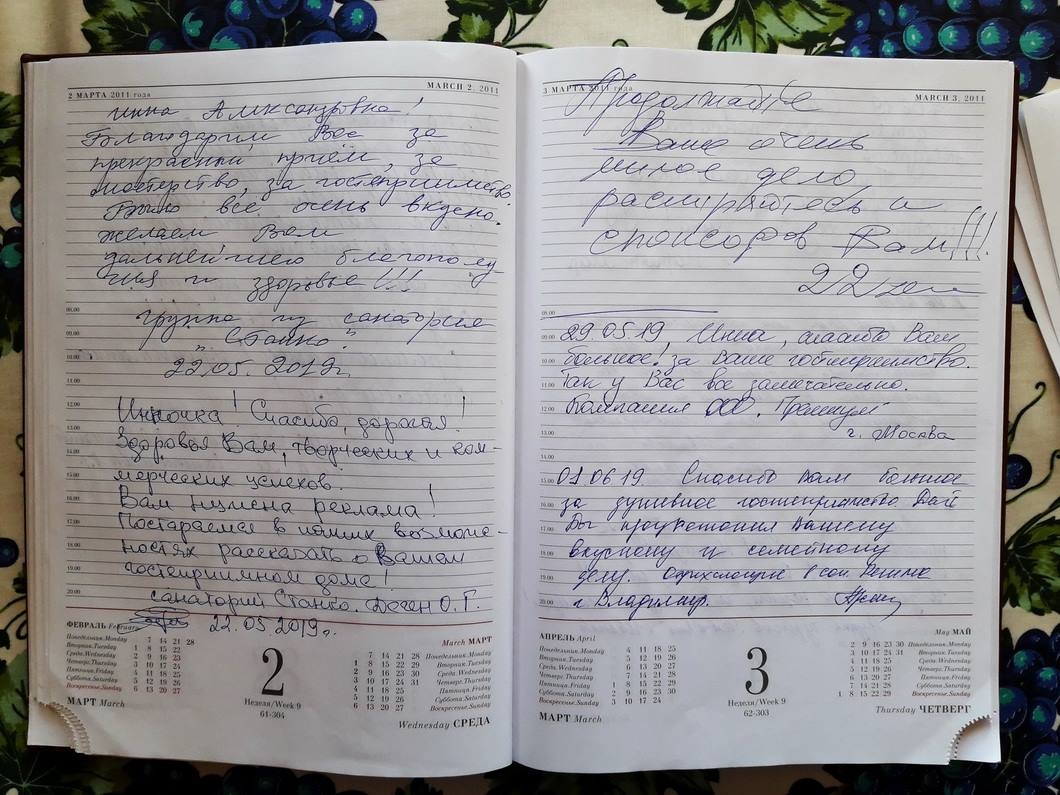 2 МАРТА 2011 года
MARCH 2, 2011
Инна Александровна!
Благодарим Вас за
прекрасный приём, за
мастерство, за гостеприимство.
Было все очень вкусно.
Желаем Вам
дальнейшего благополу-
чия и здоровья!!!
группа из санатория
"Станко"
22.05.2019г.
Инночка! Спасибо, дорогая!
Здоровья Вам, творческих и ком-
мерческих успехов.
Вам нужена реклама!
Постараемся в наших возмож-
ностях рассказать о Вашем
гостеприимном доме!
санаторий Станко. О. Г.
22.05.2019г.
08.00
09.00
10.00
11.00
12.00
13.00
14.00
15.00
16.00
17.00
18.00
19.00
20.00
ФЕВРАЛЬ February
Понедельник.Monday 7 14 21 28
Вторник.Tuesday 1 8 15 22
Среда.Wednesday 2 9 16 23
Четверг.Thursday 3 10 17 24
Пятница.Friday 4 11 18 25
Суббота.Saturday 5 12 19 26
Воскресенье.Sunday 6 13 20 27
МАРТ March
2
Неделя/Week 9
61-304
March МАРТ
7 14 21 28 Понедельник.Monday
1 8 15 22 29 Вторник.Tuesday
2 9 16 23 30 Среда.Wednesday
3 10 17 24 31 Четверг.Thursday
4 11 18 25 Пятница.Friday
5 12 19 26 Суббота.Saturday
6 13 20 27 Воскресенье.Sunday
Wednesday СРЕДА
3 МАРТА 2011 года
MARCH 3, 2011
Продолжайте
Ваше очень
милое дело
расширяйтесь и
спонсоров Вам!!!
22
08.00
09.00
10.00
11.00
12.00
13.00
14.00
15.00
16.00
17.00
18.00
19.00
20.00
29.05.19, Инна, спасибо Вам
большое! за Ваше гостеприимство.
Так у Вас все замечательно.
Компания ООО.
г. Москва
01.06.19. Спасибо вам большое
за душевное гостеприимство. Дай
Бог процветания Вашему
вкусному и семейному
делу. Отдыхающие в сан. Решма
г. Владимир.
АПРЕЛЬ April
Понедельник.Monday 4 11 18 25
Вторник.Tuesday 5 12 19 26
Среда.Wednesday 6 13 20 27
Четверг.Thursday 7 14 21 28
Пятница.Friday 1 8 15 22 29
Суббота.Saturday 2 9 16 23 30
Воскресенье.Sunday 3 10 17 24
МАРТ March
3
Неделя/Week 9
62-303
May МАЙ
2 9 16 23 30 Понедельник.Monday
3 10 17 24 31 Вторник.Tuesday
4 11 18 25 Среда.Wednesday
5 12 19 26 Четверг.Thursday
6 13 20 27 Пятница.Friday
7 14 21 28 Суббота.Saturday
1 8 15 22 29 Воскресенье.Sunday
Thursday ЧЕТВЕРГ